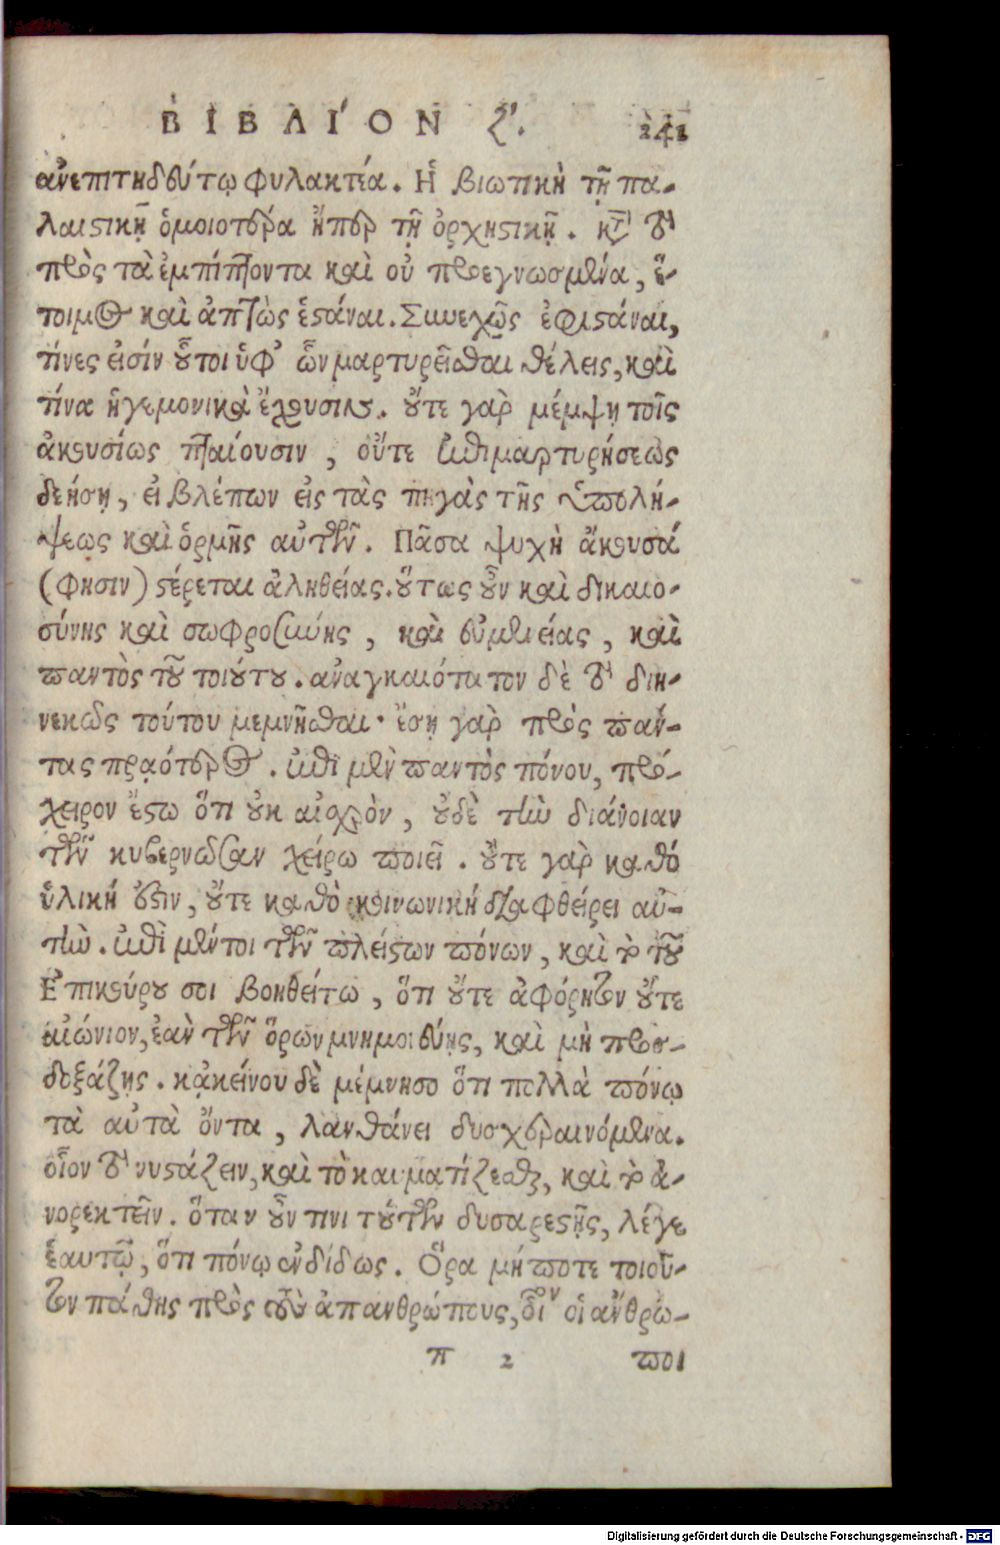 ΒΙΒΛΙΟΝ ζ'. 241
ἀνεπιτηδεύτῳ φυλακτέα. Ἡ βιωτικὴ τῇ πα-
λαιστικῇ ὁμοιοτέρα ἤπερ τῇ ὀρχηστικῇ. κατὰ τὸ
πρὸς τὰ ἐμπίπτοντα καὶ οὐ προεγνωσμένα, ἕ-
τοιμος καὶ ἀπτὼς ἑστάναι. Συνεχῶς ἐφιστάναι,
τίνες εἰσίν οὗτοι ὑφ' ὧν μαρτυρεῖσθαι θέλεις, καὶ
τίνα ἡγεμονικὰ ἔχουσιν. οὔτε γὰρ μέμψῃ τοῖς
ἀκουσίως πταίουσιν, οὔτε ἐπιμαρτυρήσεως
δεήσῃ, εἰ βλέπων εἰς τὰς πηγὰς τῆς ὑπολή-
ψεως καὶ ὁρμῆς αὐτῶν. Πᾶσα ψυχὴ ἄκουσά
(φησιν) στέρεται ἀληθείας. οὕτως οὖν καὶ δικαιο-
σύνης καὶ σωφροσύνης, καὶ εὐμενείας, καὶ
παντὸς τοῦ τοιούτου. ἀναγκαιότατον δὲ τὸ διη-
νεκῶς τούτου μεμνῆσθαι· ἔσῃ γὰρ πρὸς πάν-
τας πρᾳότερος. ἐπὶ μὲν παντὸς πόνου, πρό-
χειρον ἔστω ὅτι οὐκ αἰσχρὸν, οὐδὲ τὴν διάνοιαν
τὴν κυβερνῶσαν χείρω ποιεῖ. οὔτε γὰρ καθό
ὑλική ἐστιν, οὔτε καθὸ κοινωνική διαφθείρει αὐ-
τήν. ἐπὶ μέντοι τῶν πλείστων πόνων, καὶ τὸ τοῦ
Ἐπικούρου σοι βοηθείτω, ὅτι οὔτε ἀφόρητον οὔτε
αἰώνιον, ἐὰν τῶν ὅρων μνημονεύῃς, καὶ μὴ προσ-
δοξάζῃς. κᾀκείνου δὲ μέμνησο ὅτι πολλὰ πόνῳ
τὰ αὐτὰ ὄντα, λανθάνει δυσχεραινόμενα.
οἷον τὸ νυστάζειν, καὶ τὸ καυματίζεσθαι, καὶ τὸ ἀ-
νορεκτεῖν. ὅταν οὖν τινι τούτων δυσαρεστῇς, λέγε
ἑαυτῷ, ὅτι πόνῳ ἐνδίδως. Ὅρα μήποτε τοιοῦ-
τον πάθῃς πρὸς τοὺς ἀπανθρώπους, οἷον οἱ ἄνθρω-
π 2 ποι
Digitalisierung gefördert durch die Deutsche Forschungsgemeinschaft - DFG